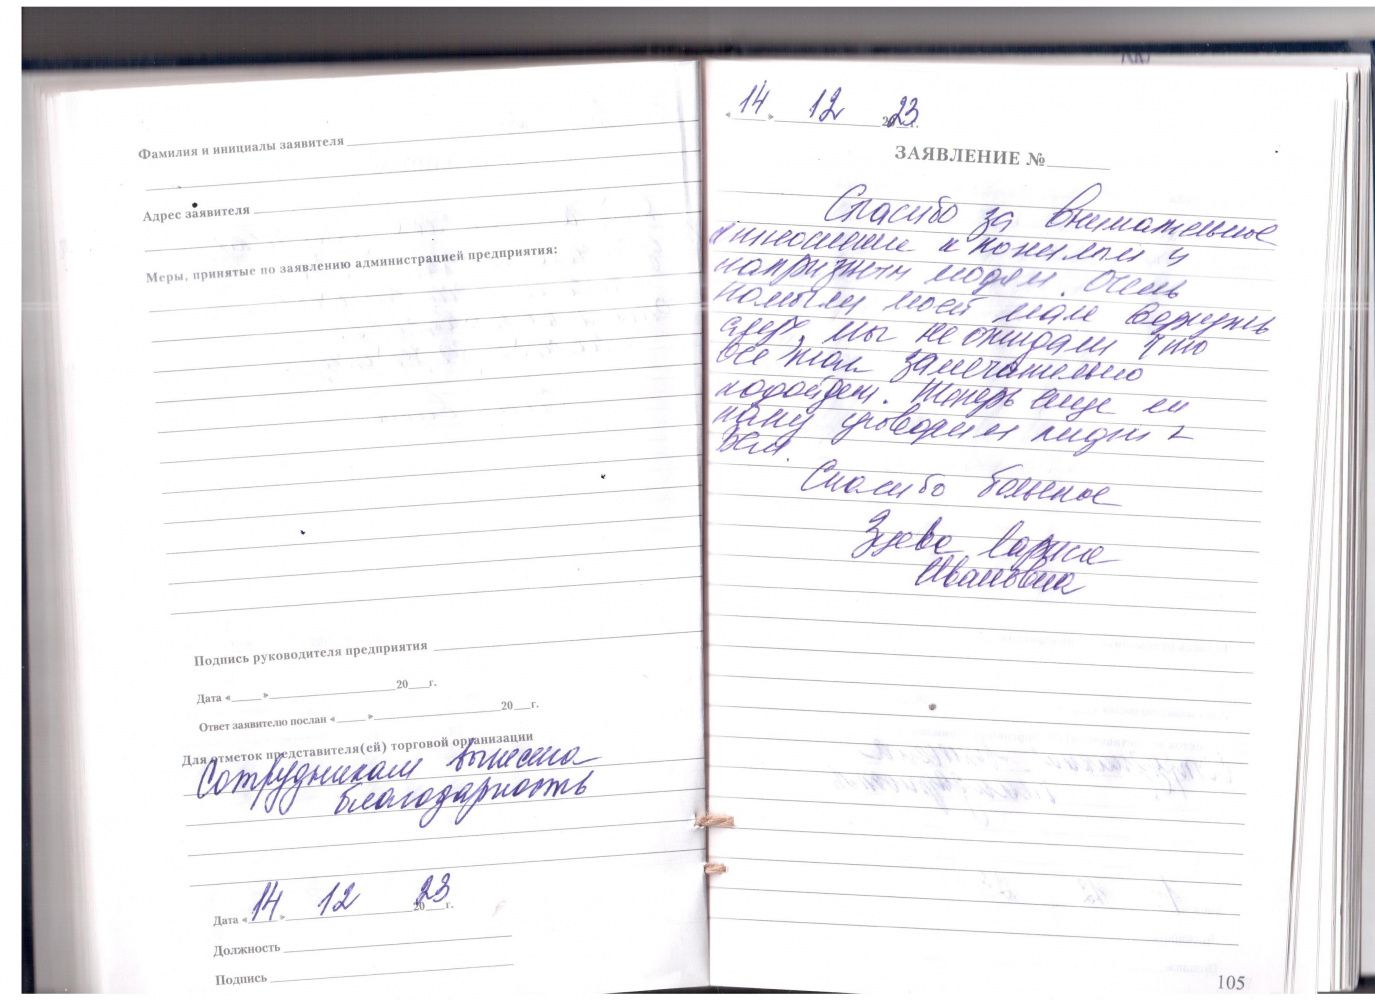 Фамилия и инициалы заявителя
Адрес заявителя
Меры, принятые по заявлению администрацией предприятия:
Подпись руководителя предприятия
Дата «____»____20__г.
Ответ заявителю послан «____»____20__г.
Для отметок представителя(ей) торговой организации
Сотрудникам вынесена
благодарность
Дата «14» 12 2023г.
Должность
Подпись
«14» 12 2023г.
ЗАЯВЛЕНИЕ №
Спасибо за внимательное
отношение к пожилым и
людям. Очень
помогли моей маме
слух, мы не ожидали что
все так замечательно
подойдет. Теперь еще и
папу уговорили
Спасибо большое
Лариса
Ивановна
105